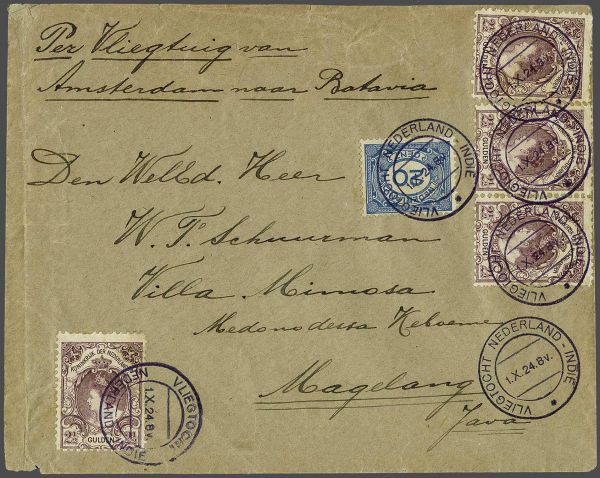 Per Vliegtuig van
Amsterdam naar Batavia
Den WelEd. Heer
W. F. Schuurman
Villa Mimosa
Magelang
Java
VLIEGTOCHT NEDERLAND - INDIE
1.X.24.8v.
VLIEGTOCHT NEDERLAND - INDIE
1.X.24.8v.
VLIEGTOCHT NEDERLAND - INDIE
1.X.24.8v.
VLIEGTOCHT NEDERLAND - INDIE
1.X.24.8v.
VLIEGTOCHT NEDERLAND - INDIE
1.X.24.8v.
VLIEGTOCHT NEDERLAND INDIE
1.X.24.8v.
KONINGRIJK DER NEDERLANDEN
2½ GULDEN
2½ GULDEN
2½ GULDEN
2½ GULDEN